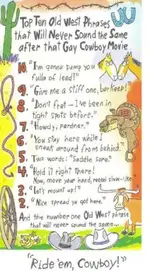 Top Ten Old West Phrases
that Will Never Sound the Same
after that Gay Cowboy Movie
10. "I'm gonna pump you
fulla of lead!"
9. "Give me a stiff one, barkeep!"
8. "Don't fret—I've been in
tight spots before."
7. "Howdy, pardner."
6. "You stay here while I
sneak around from behind."
5. Two words: "Saddle Sore."
4. "Hold it right there!
Now, move your hand, real slow-like."
3. "Let's mount up!"
2. "Nice spread you got here."
And the number one Old West phrase
that will never sound the same...
"Ride 'em, Cowboy!"